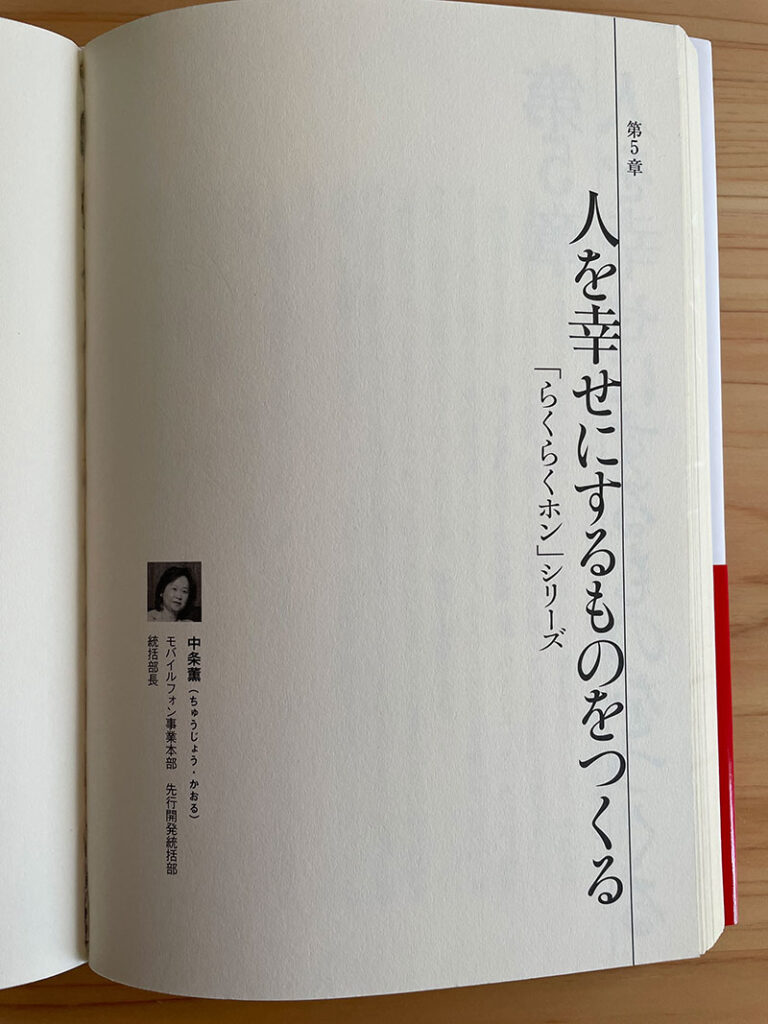 第5章
人を幸せにするものをつくる
「らくらくホン」シリーズ
中条薫（ちゅうじょう・かおる）
モバイルフォン事業本部　先行開発統括部
統括部長